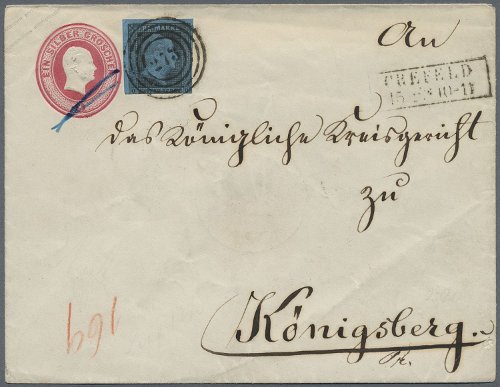 EIN SILBER GROSCHEN
FREIMARKE
An
CREFELD
10-11
das Königliche Kreisgericht
zu
Königsberg.
Pr.
169